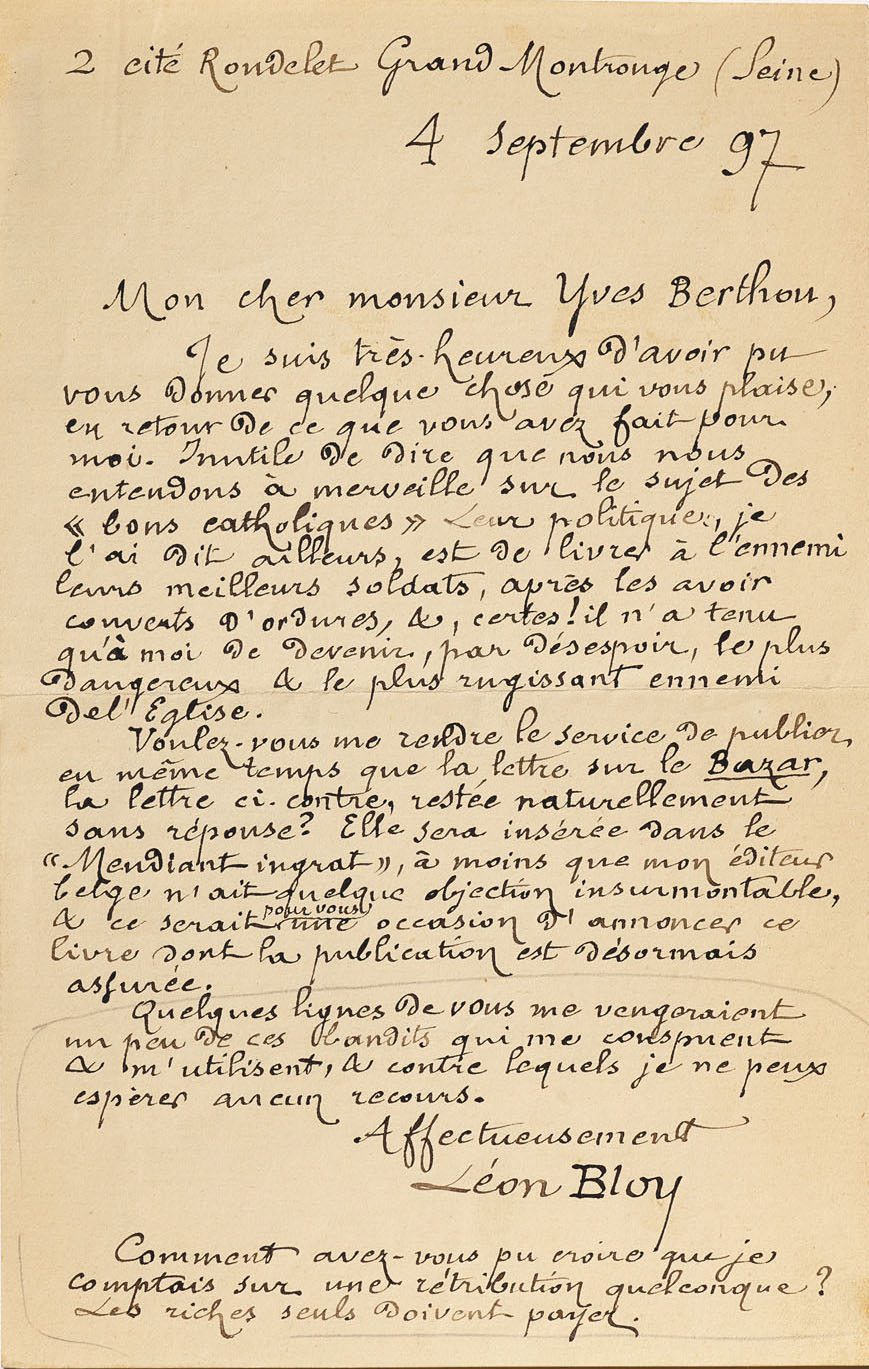 2 cité Rondelet Grand Montrouge (Seine)
4 septembre 97
Mon cher monsieur Yves Berthou,
Je suis très-heureux d'avoir pu
vous donner quelque chose qui vous plaise,
en retour de ce que vous avez fait pour
moi. Inutile de dire que nous nous
entendons à merveille sur le sujet des
« bons catholiques » Leur politique, je
l'ai dit ailleurs, est de livrer à l'ennemi
leurs meilleurs soldats, après les avoir
couverts d'ordures, &, certes! il n'a tenu
qu'à moi de devenir, par désespoir, le plus
dangereux & le plus rugissant ennemi
de l'Eglise.
Voulez-vous me rendre le service de publier
en même temps que la lettre sur le Bazar,
la lettre ci-contre, restée naturellement
sans réponse? Elle sera insérée dans le
« Mendiant ingrat », à moins que mon éditeur
belge n'ait quelque objection insurmontable,
pour vous
& ce serait une occasion d'annoncer ce
livre dont la publication est désormais
assurée.
Quelques lignes de vous me vengeraient
un peu de ces bandits qui me conspuent
& m'utilisent, & contre lequels je ne peux
espérer aucun recours.
Affectueusement
Léon Bloy
Comment avez-vous pu croire que je
comptais sur une rétribution quelconque?
Les riches seuls doivent payer.